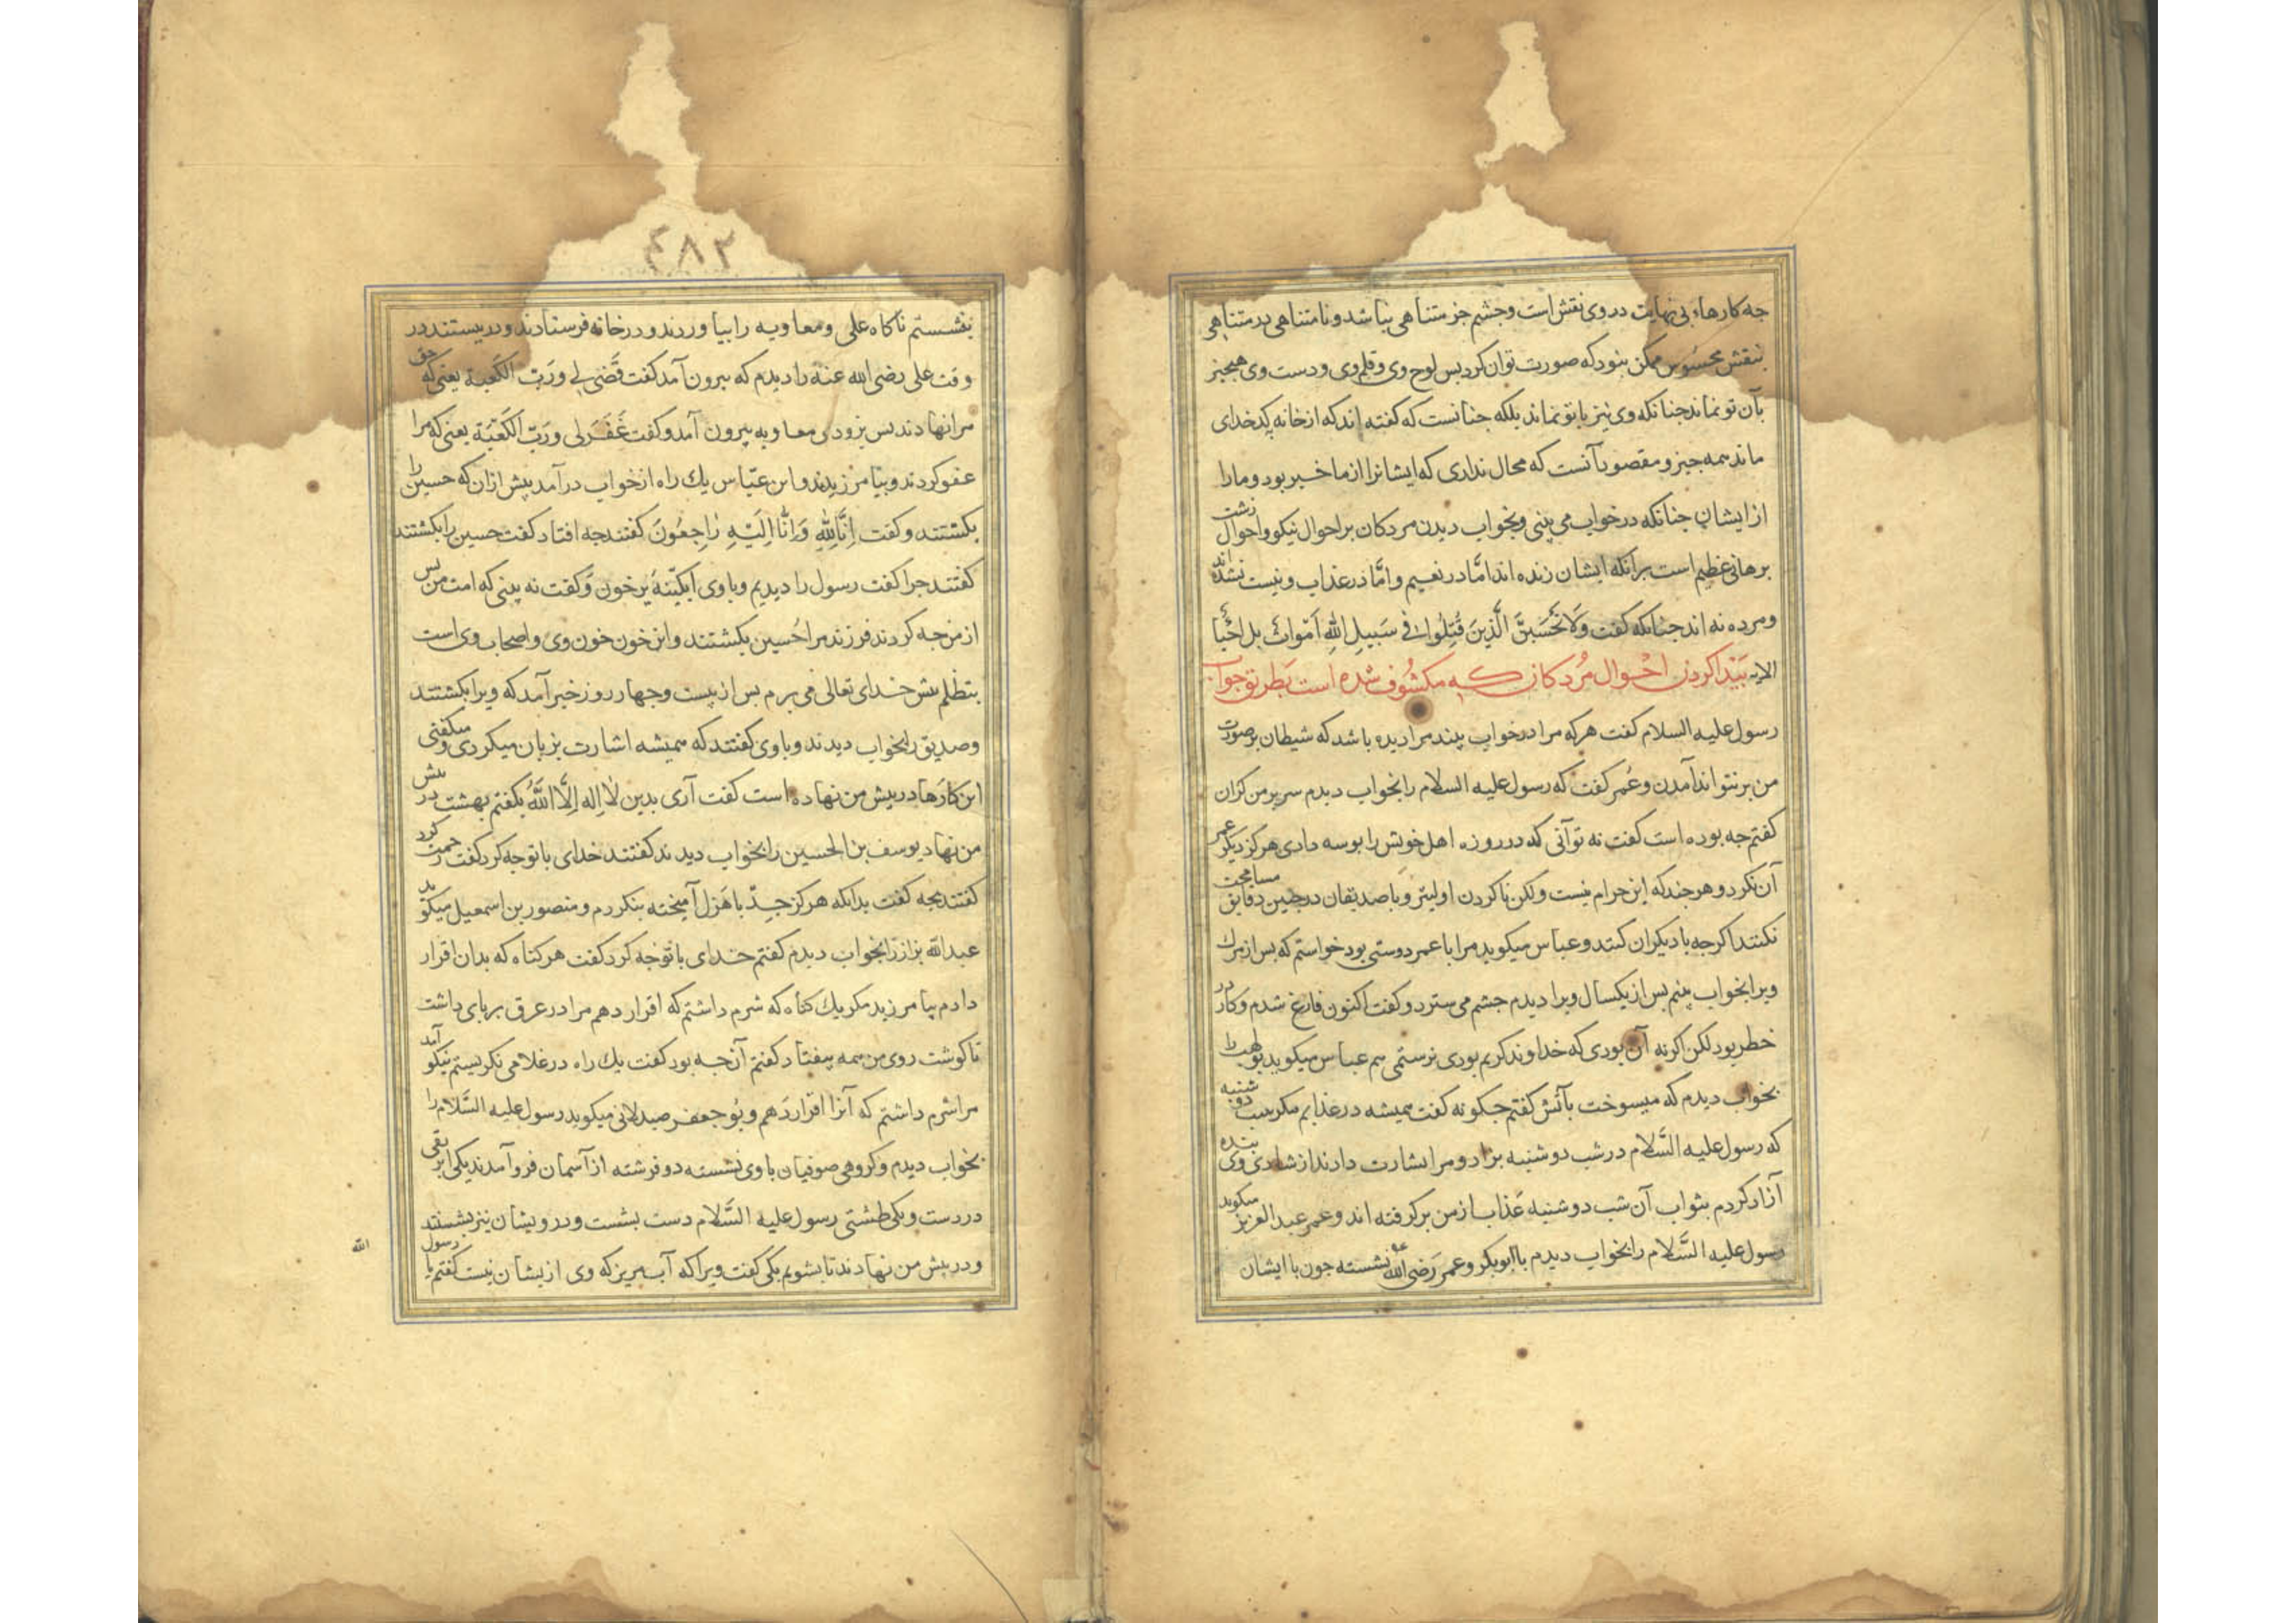 جه کارهاء بی نهایت در وی نقش است وجشم جز متناهی نباشد ونامتناهی در متناهی
بنقش محسوس ممکن نبود که صورت توان کرد بس لوح وی وقلم وی ودست وی هیجیز
بآن تو نماند جنانکه وی نیز باتو نماند بلکه جنانست که کفته اند که از خانه بکدخدای
ماند همه جیز ومقصود آنست که محال نداری که ایشانرا از ما خبر بود ومارا
از ایشان جنانکه در خواب می بینی وبخواب دیدن مردکان بر احوال نیکو واحوال زشت
برهانی عظیم است برآنکه ایشان زنده اند امّا در نعیم وامّا در عذاب ونیست نشده اند
ومرده نه اند جنانکه کفت وَلَا تَحْسَبَنَّ الَّذِینَ قُتِلُوا فی سَبیلِ اللهِ اَمْواتٌ بل احْیٰا
الایه بَیْدا کردن احْوال مُردکان که مکشُوف شده است بَطریق خواب
رسول علیه السلام کفت هرکه مرا در خواب بیند مرا دیده باشد که شیطان بر صورت
من بر نتواند آمدن وعُمر کفت که رسول علیه السلام را بخواب دیدم سر بر من کران
کفتم جه بوده است کفت نه تو آنی که در روزه اهل خویش را بوسه دادی هرکز دیکر عمر
آن نکرد وهر جند که این حرام نیست ولکن ناکردن اولیتر وبا صدیقان در جنین دقایق مسامحت
نکنند اکرجه با دیکران کنند وعباس میکوید مرا با عمر دوستی بود خواستم که بس از مرک
ویرا بخواب بینم بس از یکسال ویرا دیدم جشم می سترد وکفت اکنون فارغ شدم وکار در
خطر بود لکن اکر نه آن بودی که خداوند کریم بودی نرستمی هم عباس میکوید بولهب را
بخواب دیدم که میسوخت بآتش کفتم جکونه کفت همیشه در عذابم مکر شب دوشنبه
که رسول علیه السَّلام در شب دوشنبه بزاد ومرا بشارت دادند از شادی وی بنده
آزاد کردم بثواب آن شب دوشنبه عَذاب از من برکرفته اند وعمر عبد العزیز میکوید
رسول علیه السَّلام را بخواب دیدم با ابوبکر وعمر رَضی الله عنه نشسته جون با ایشان
٤٨٢
بنشستم ناکاه علی ومعاویه را بیاوردند ودر خانه فرستادند ودر ببستند در
وقت علی رضی الله عنه را دیدم که بیرون آمد کفت قَضی لی ورَبّ الکَعبة یعنی که حق
مرا نهادند بس بزودی معاویه بیرون آمد وکفت غَفَرلی ورَبّ الکَعْبَة یعنی که مرا
عفو کردند وبیامرزیدند وابن عبّاس یك راه از خواب درآمد بیش ازان که حسین را
بکشتند وکفت اِنَّا لِلّٰهِ وَاِنَّا اِلَیْهِ رٰاجِعُونَ کفتند جه افتاد کفت حسین را بکشتند
کفتند جرا کفت رسول را دیدم وبا وی آبکینهٔ پر خون وکفت نه بینی که امت من بس
از من جه کردند فرزند مرا حُسین بکشتند واین خون خون وی واصحاب وی است
بتظلم بیش خدای تعالی می برم بس از بیست وجهار روز خبر آمد که ویرا بکشتند
وصدیق را بخواب دیدند وبا وی کفتند که همیشه اشارت بزبان میکردی ومیکفتی
این کارها در بیش من نهاده است کفت آری بدین لا اِله اِلَّا اللّٰه بکفتم بهشت در بیش
من نهاد یوسف بن الحسین را بخواب دیدند کفتند خدای با تو جه کرد کفت رحمت کرد
کفتند بجه کفت بدانکه هرکز جِدّ با هَزل آمیخته بنکردم ومنصور بن اسمعیل میکوید
عبدالله بزاز را بخواب دیدم کفتم خدای با تو جه کرد کفت هر کناه که بدان اقرار
دادم بیامرزید مکر یك کناه که شرم داشتم که اقرار دهم مرا در عرق بربای داشت
تا کوشت روی من همه بیفتاد کفتم آن جه بود کفت یك راه در غلامی نکریستم نیکو آمد
مرا شرم داشتم که آنرا اقرار دَهم وبُو جعفر صیدلانی میکوید رسول علیه السَّلام را
بخواب دیدم وکروهی صوفیان با وی نشسته دو فرشته از آسمان فروآمدند یکی ابریقی
در دست ویکی طشتی رسول علیه السَّلام دست بشست ودرویشان نیز بشستند
ودر بیش من نهادند تا بشویم یکی کفت ویرا که آب مریز که وی از یشان نیست کفتم یا رسول
الله